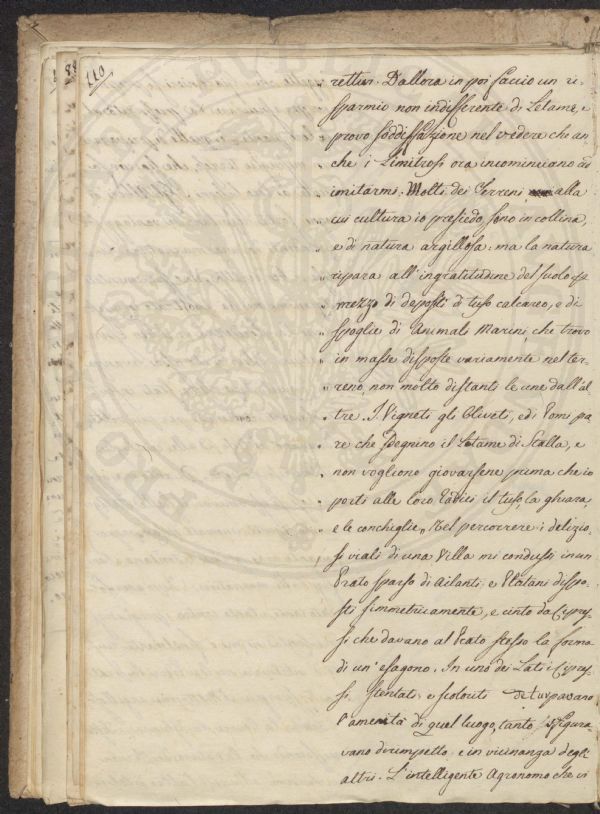 110
" rettur. Dallora in poi faccio un ri-
" sparmio non indifferente di Letame, e
" provo soddisfazione nel vedere che an-
" che i Limitrofi ora incominciano ad
" imitarmi. Molti dei Terreni alla
" cui cultura io presiedo, sono in collina,
" e di natura argillosa: ma la natura
" ripara all'ingratitudine del suolo per
" mezzo di depositi di tufo calcareo, e di
" spoglie di Animali Marini, che trovo
" in masse disposte variamente nel ter-
" reno, non molto distanti le une dall'al-
" tre. I Vigneti gli Oliveti, ed i Pomi pa
" re che sdegnino il Letame di Stalla, e
" non vogliono giovarsene prima che io
" porti alle loro Radici il tufo, la ghiara,
" e le conchiglie„ Nel percorrere i delizio-
si viali di una Villa mi condussi in un
Prato sparso di Ailanti e Platani dispo-
sti simmetricamente, e cinto da Cipres-
si che davano al Prato stesso la forma
di un' esagono. In uno dei Lati i Cipres-
si stentati e scoloriti deturpavano
l'amenità di quel luogo, tanto sfigura-
vano dirimpetto e in vicinanza degli
altri. L'intelligente Agronomo che vi